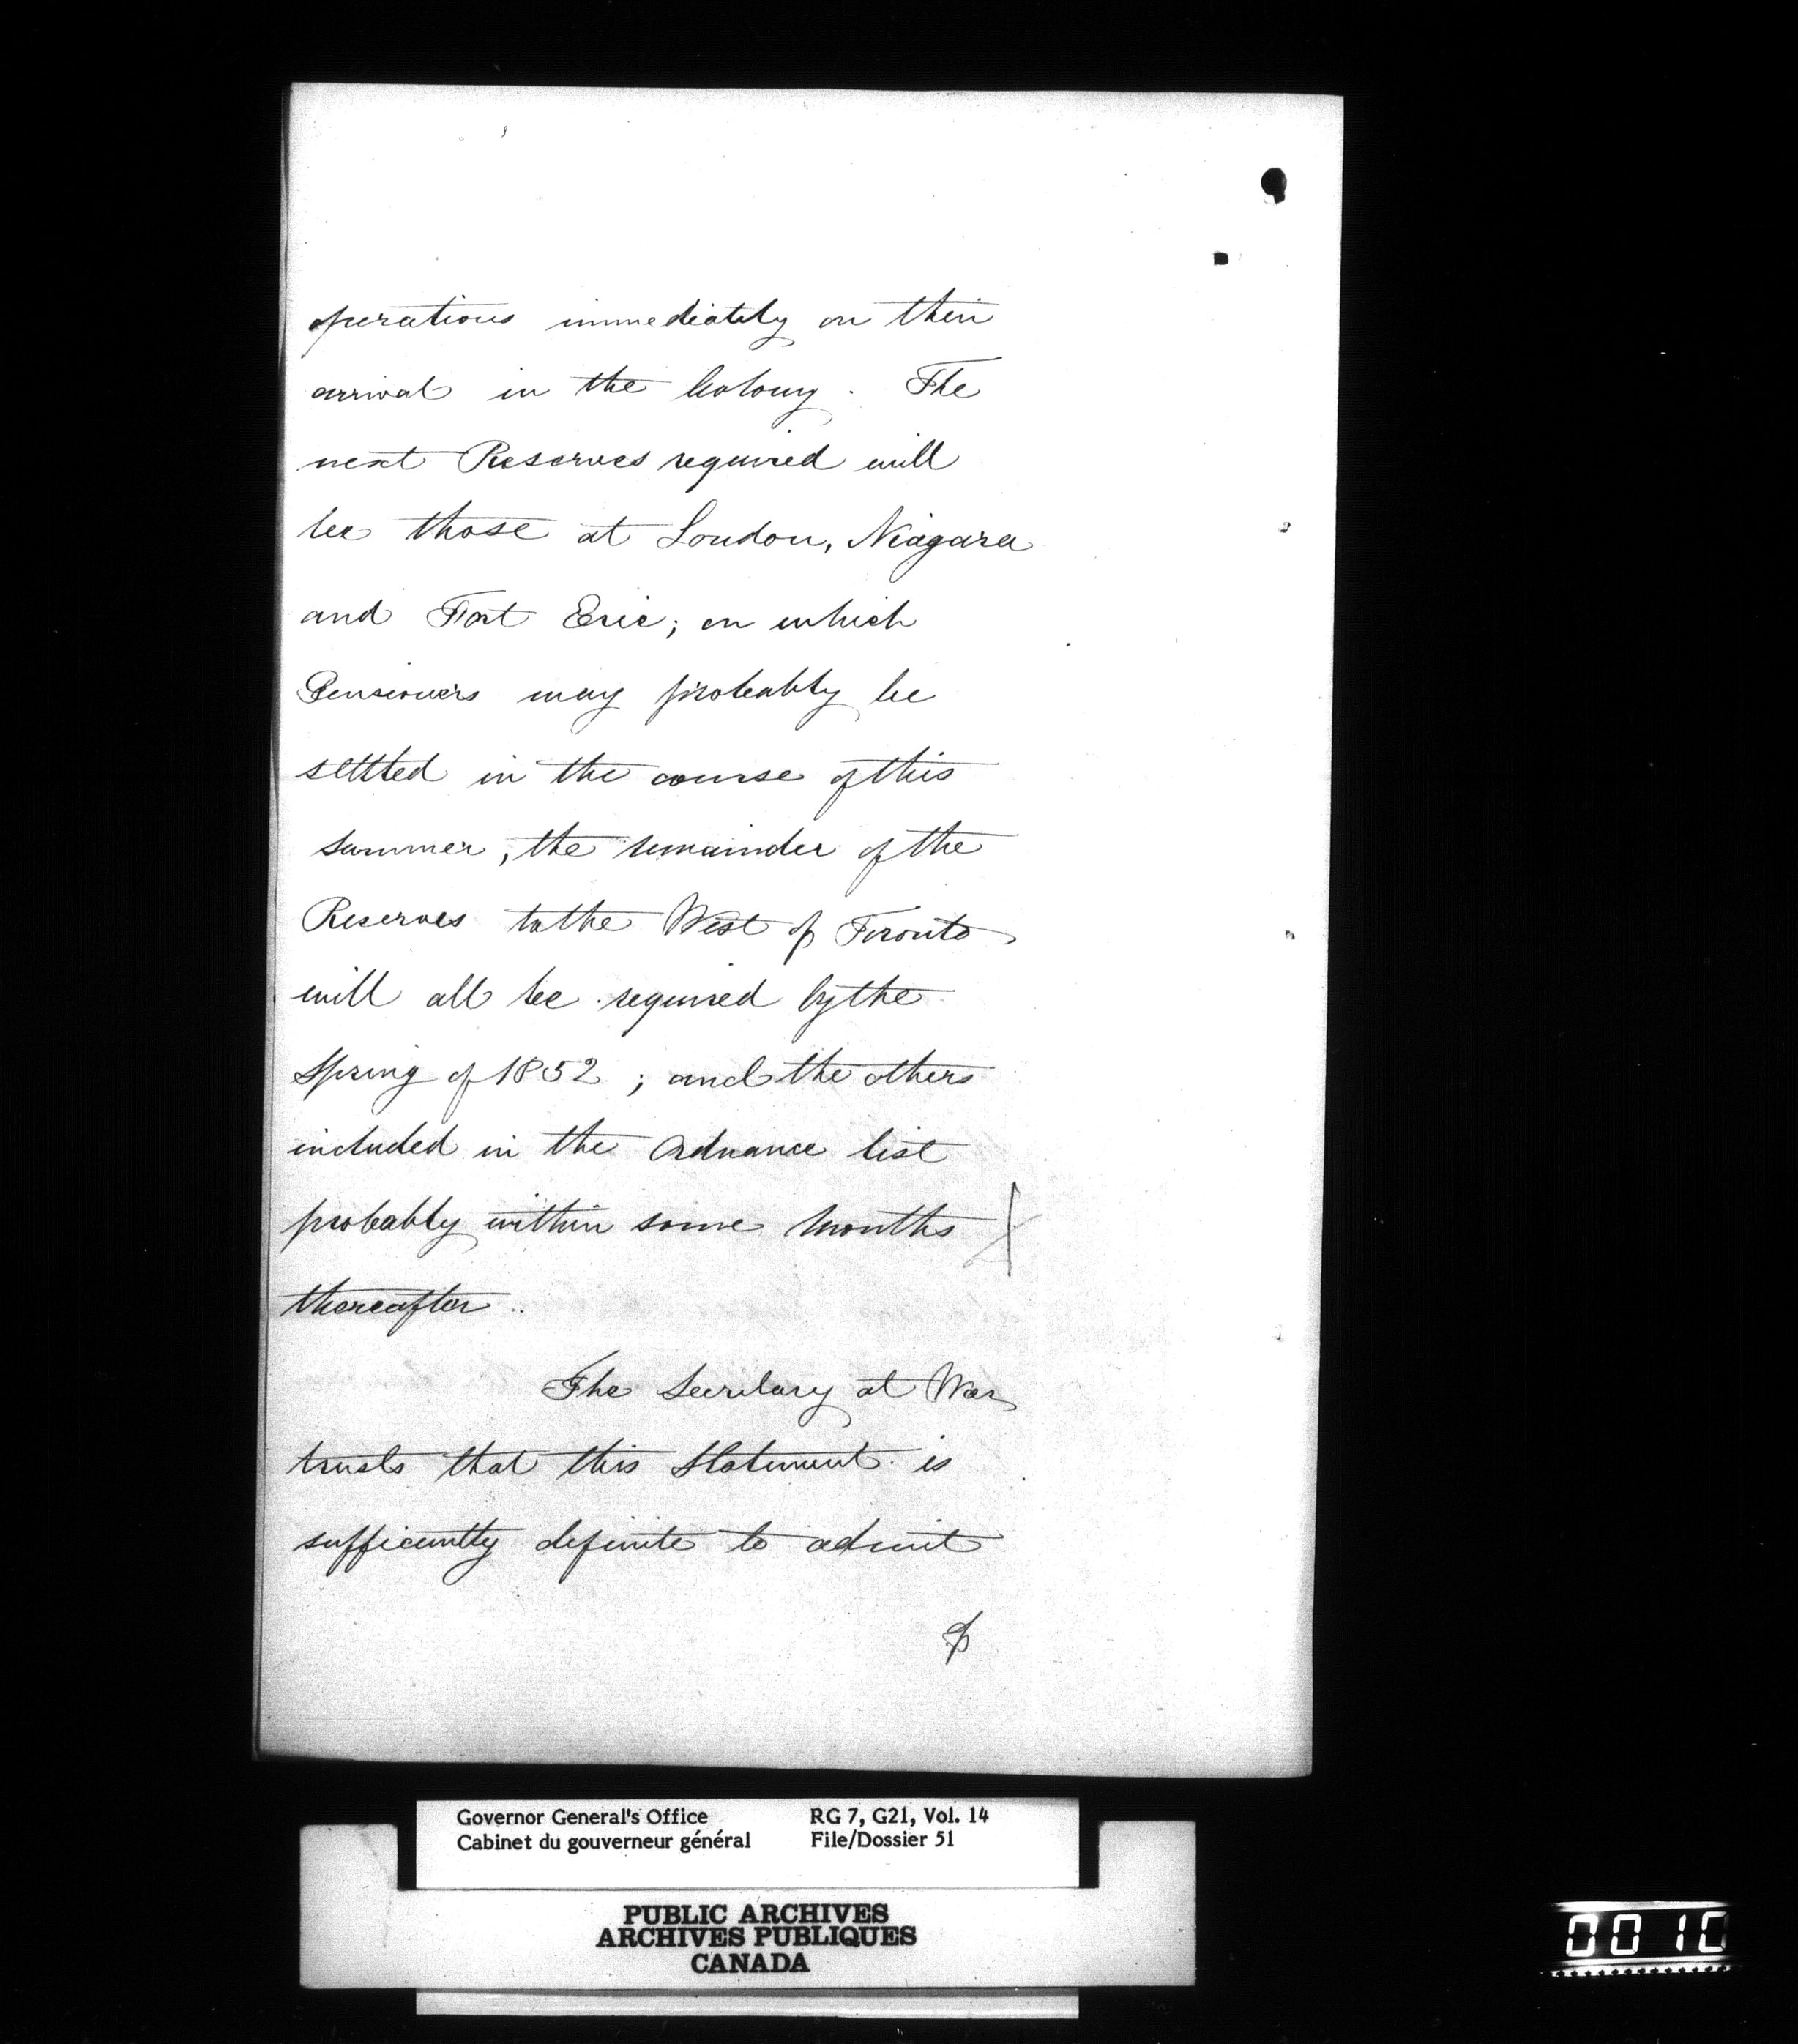 operations immediately on their
arrival in the Colony. The
next Reserves required will
be those at London, Niagara
and Fort Erie; on which
Pensioners may probably be
settled in the course of this
summer, the remainder of the
Reserves to the West of Toronto
will all be required by the
Spring of 1852; and the others
included in the Ordnance list
probably within some months
thereafter.
The Secretary at War
trusts that this Statement is
sufficently definite to admit
Governor General's Office RG 7, G21, Vol. 14
Cabinet du gouverneur général File/Dossier 51
PUBLIC ARCHIVES
ARCHIVES PUBLIQUES
CANADA
0010